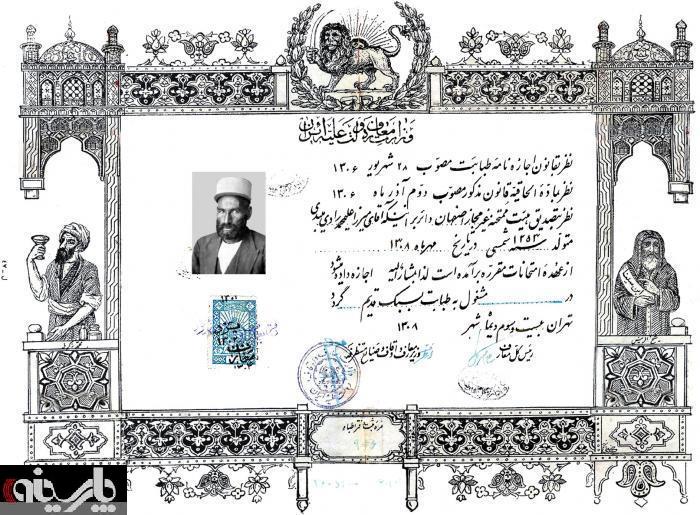 وزارت معارف دولت علیه ایران
نظر بقانون اجازه نامه طبابت مصوب ۲۸ شهریور ۱۳۰۶
نظر بمادهٔ الحاقیهٔ قانون مذکور مصوب دوم آذر ماه ۱۳۰۶
نظر بتصدیق هیئت ممتحنه غیر مجاز اصفهان دائر بر اینکه آقای میرزا علیمحمد مرادی
متولد ۱۲۵۳ شمسی در تاریخ مهر ماه ۱۳۰۸
از عهدهٔ امتحانات مقرره برآمده است لذا بمشارالیه اجازه داده میشود
در مشغول به طبابت بسبک قدیم گردد
تهران بیست و سوم دیماه شهر ۱۳۰۸
رئیس کل معارف وزیر معارف و اوقاف و صنایع مستظرفه
نمره ثبت دفتر اطباء
پارسینه